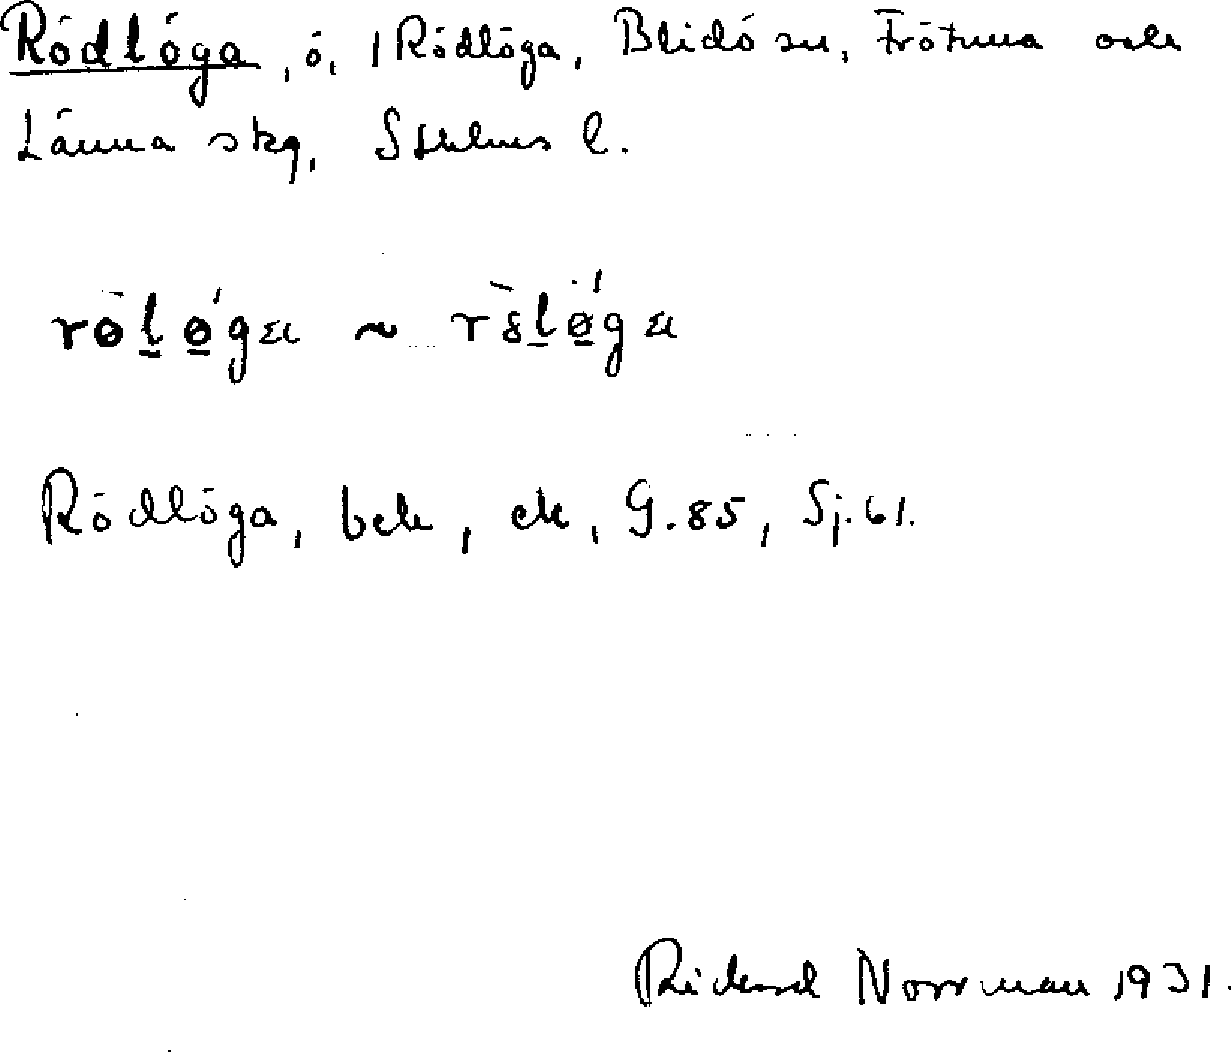 Rödlöga, ö, i Rödlöga, Blidö sn, Frötuna och
Länna skg, Sthlms l.
rö̀lø̄́ga ~ rs̀lø̄́ga
Rödlöga, beb, ek, G.85, Sj.61.
Rickard Norrman 1931.